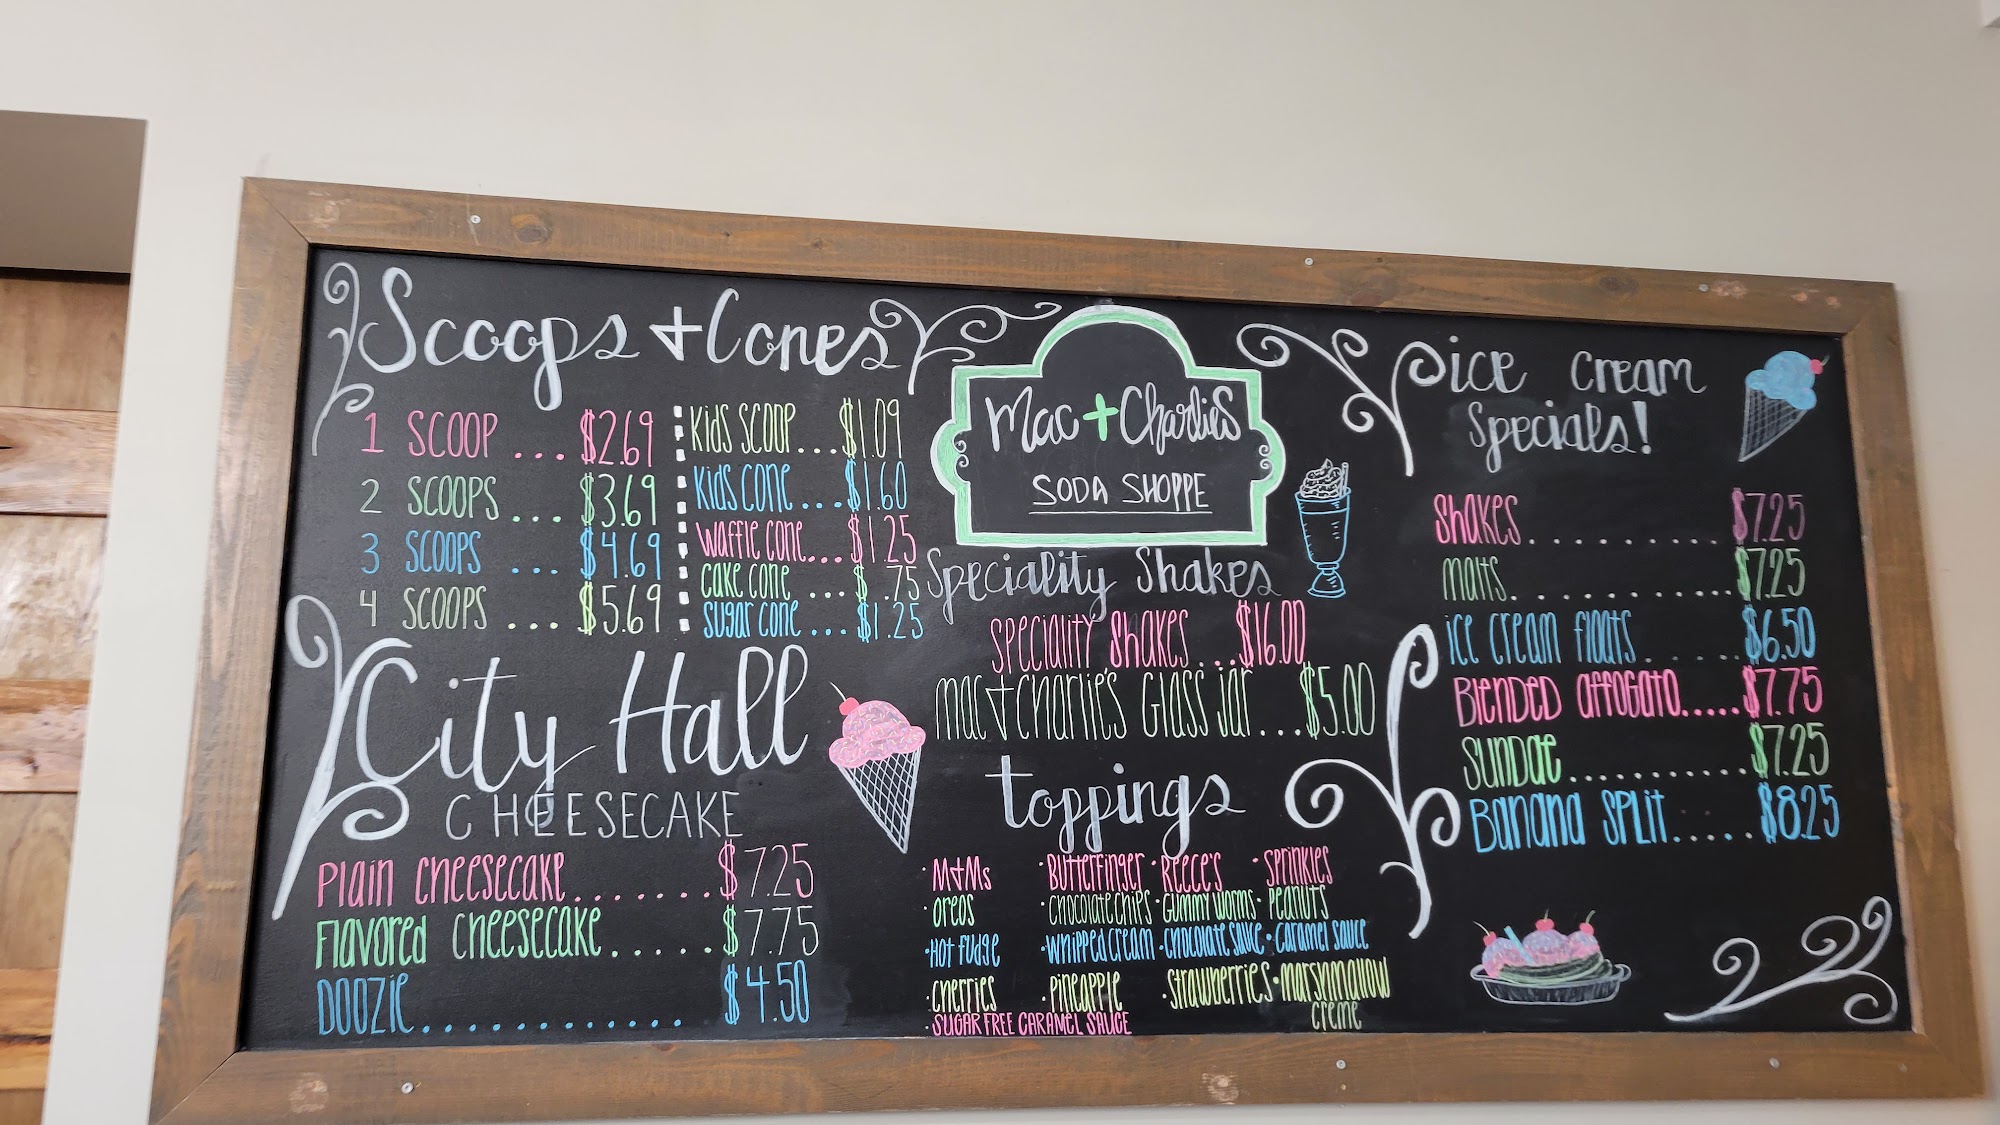 Scoops + Cones
1 SCOOP ... $2.69
2 SCOOPS ... $3.69
3 SCOOPS ... $4.69
4 SCOOPS ... $5.69
Kids SCOOP... $1.09
Kids CONE ... $1.60
Waffle Cone... $1.25
Cake Cone ... $ .75
Sugar Cone ... $1.25
City Hall
CHEESECAKE
Plain Cheesecake....... $7.25
Flavored Cheesecake ..... $7.75
DOOZIE ............. $4.50
Mac + Charlies
SODA SHOPPE
Speciality Shakes
Speciality Shakes ... $16.00
Mac + Charlie's Glass Jar ... $5.00
toppings
· M+Ms · Butterfinger · Reece's · Sprinkles
· Oreos · Chocolate Chips · Gummy Worms · Peanuts
· Hot Fudge · Whipped Cream · Chocolate Sauce · Caramel Sauce
· Cherries · Pineapple · Strawberries · Marshmallow Creme
· SUGAR FREE CARAMEL SAUCE
ice cream
Specials!
Shakes.......... $7.25
Malts............ $7.25
Ice Cream Floats ..... $6.50
Blended Affogato..... $7.75
Sundae........... $7.25
Banana Split..... $8.25